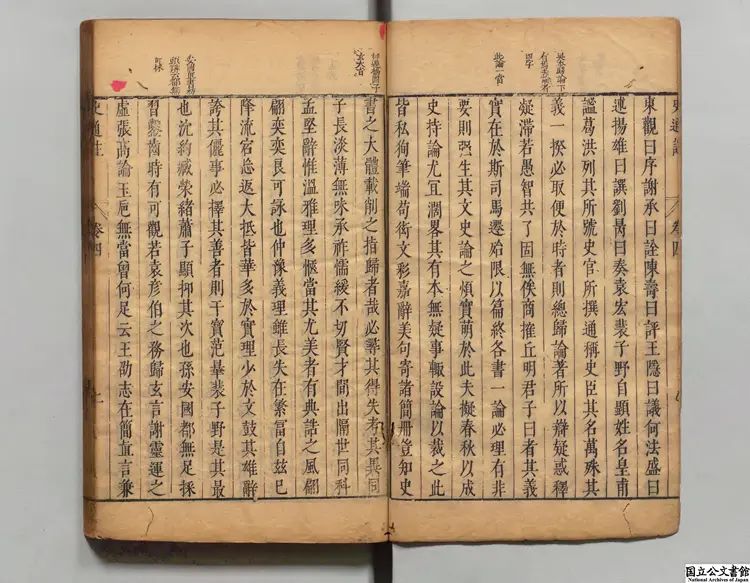 東觀曰序謝承曰詮陳壽曰評王隱曰議何法盛曰
述揚雄曰譔劉昺曰奏袁宏裴子野自顯姓名皇甫
謐葛洪列其所號史官所撰通稱史臣其名萬殊其
義一揆必取便於時者則總歸論著所以辯疑惑釋
疑滯若愚智共了固無俟商搉丘明君子曰者其義
實在於斯司馬遷始限以篇終各書一論必理有非
要則強生其文史論之煩實萌於此夫擬春秋以成
史持論尤宜濶畧其有本無疑事輒設論以裁之此
皆私徇筆端苟衒文彩嘉辭美句寄諸簡冊豈知史
書之大體載削之指歸者哉必尋其得失考其異同
子長淡薄無味承祚懦緩不切賢才間出隔世同科
孟堅辭惟溫雅理多愜當其尤美者有典誥之風翩
翩奕奕良可詠也仲豫義理雖長失在繁富自茲已
降流宕忘返大抵皆華多於實理少於文鼓其雄辭
誇其儷事必擇其善者則干寶范曄裴子野是其最
也沈約臧榮緒蕭子顯抑其次也孫安國都無足採
習鑿齒時有可觀若袁彥伯之務歸玄言謝靈運之
虛張高論玉巵無當曾何足云王劭志在簡直言兼
卷四
国立公文書館
National Archives of Japan